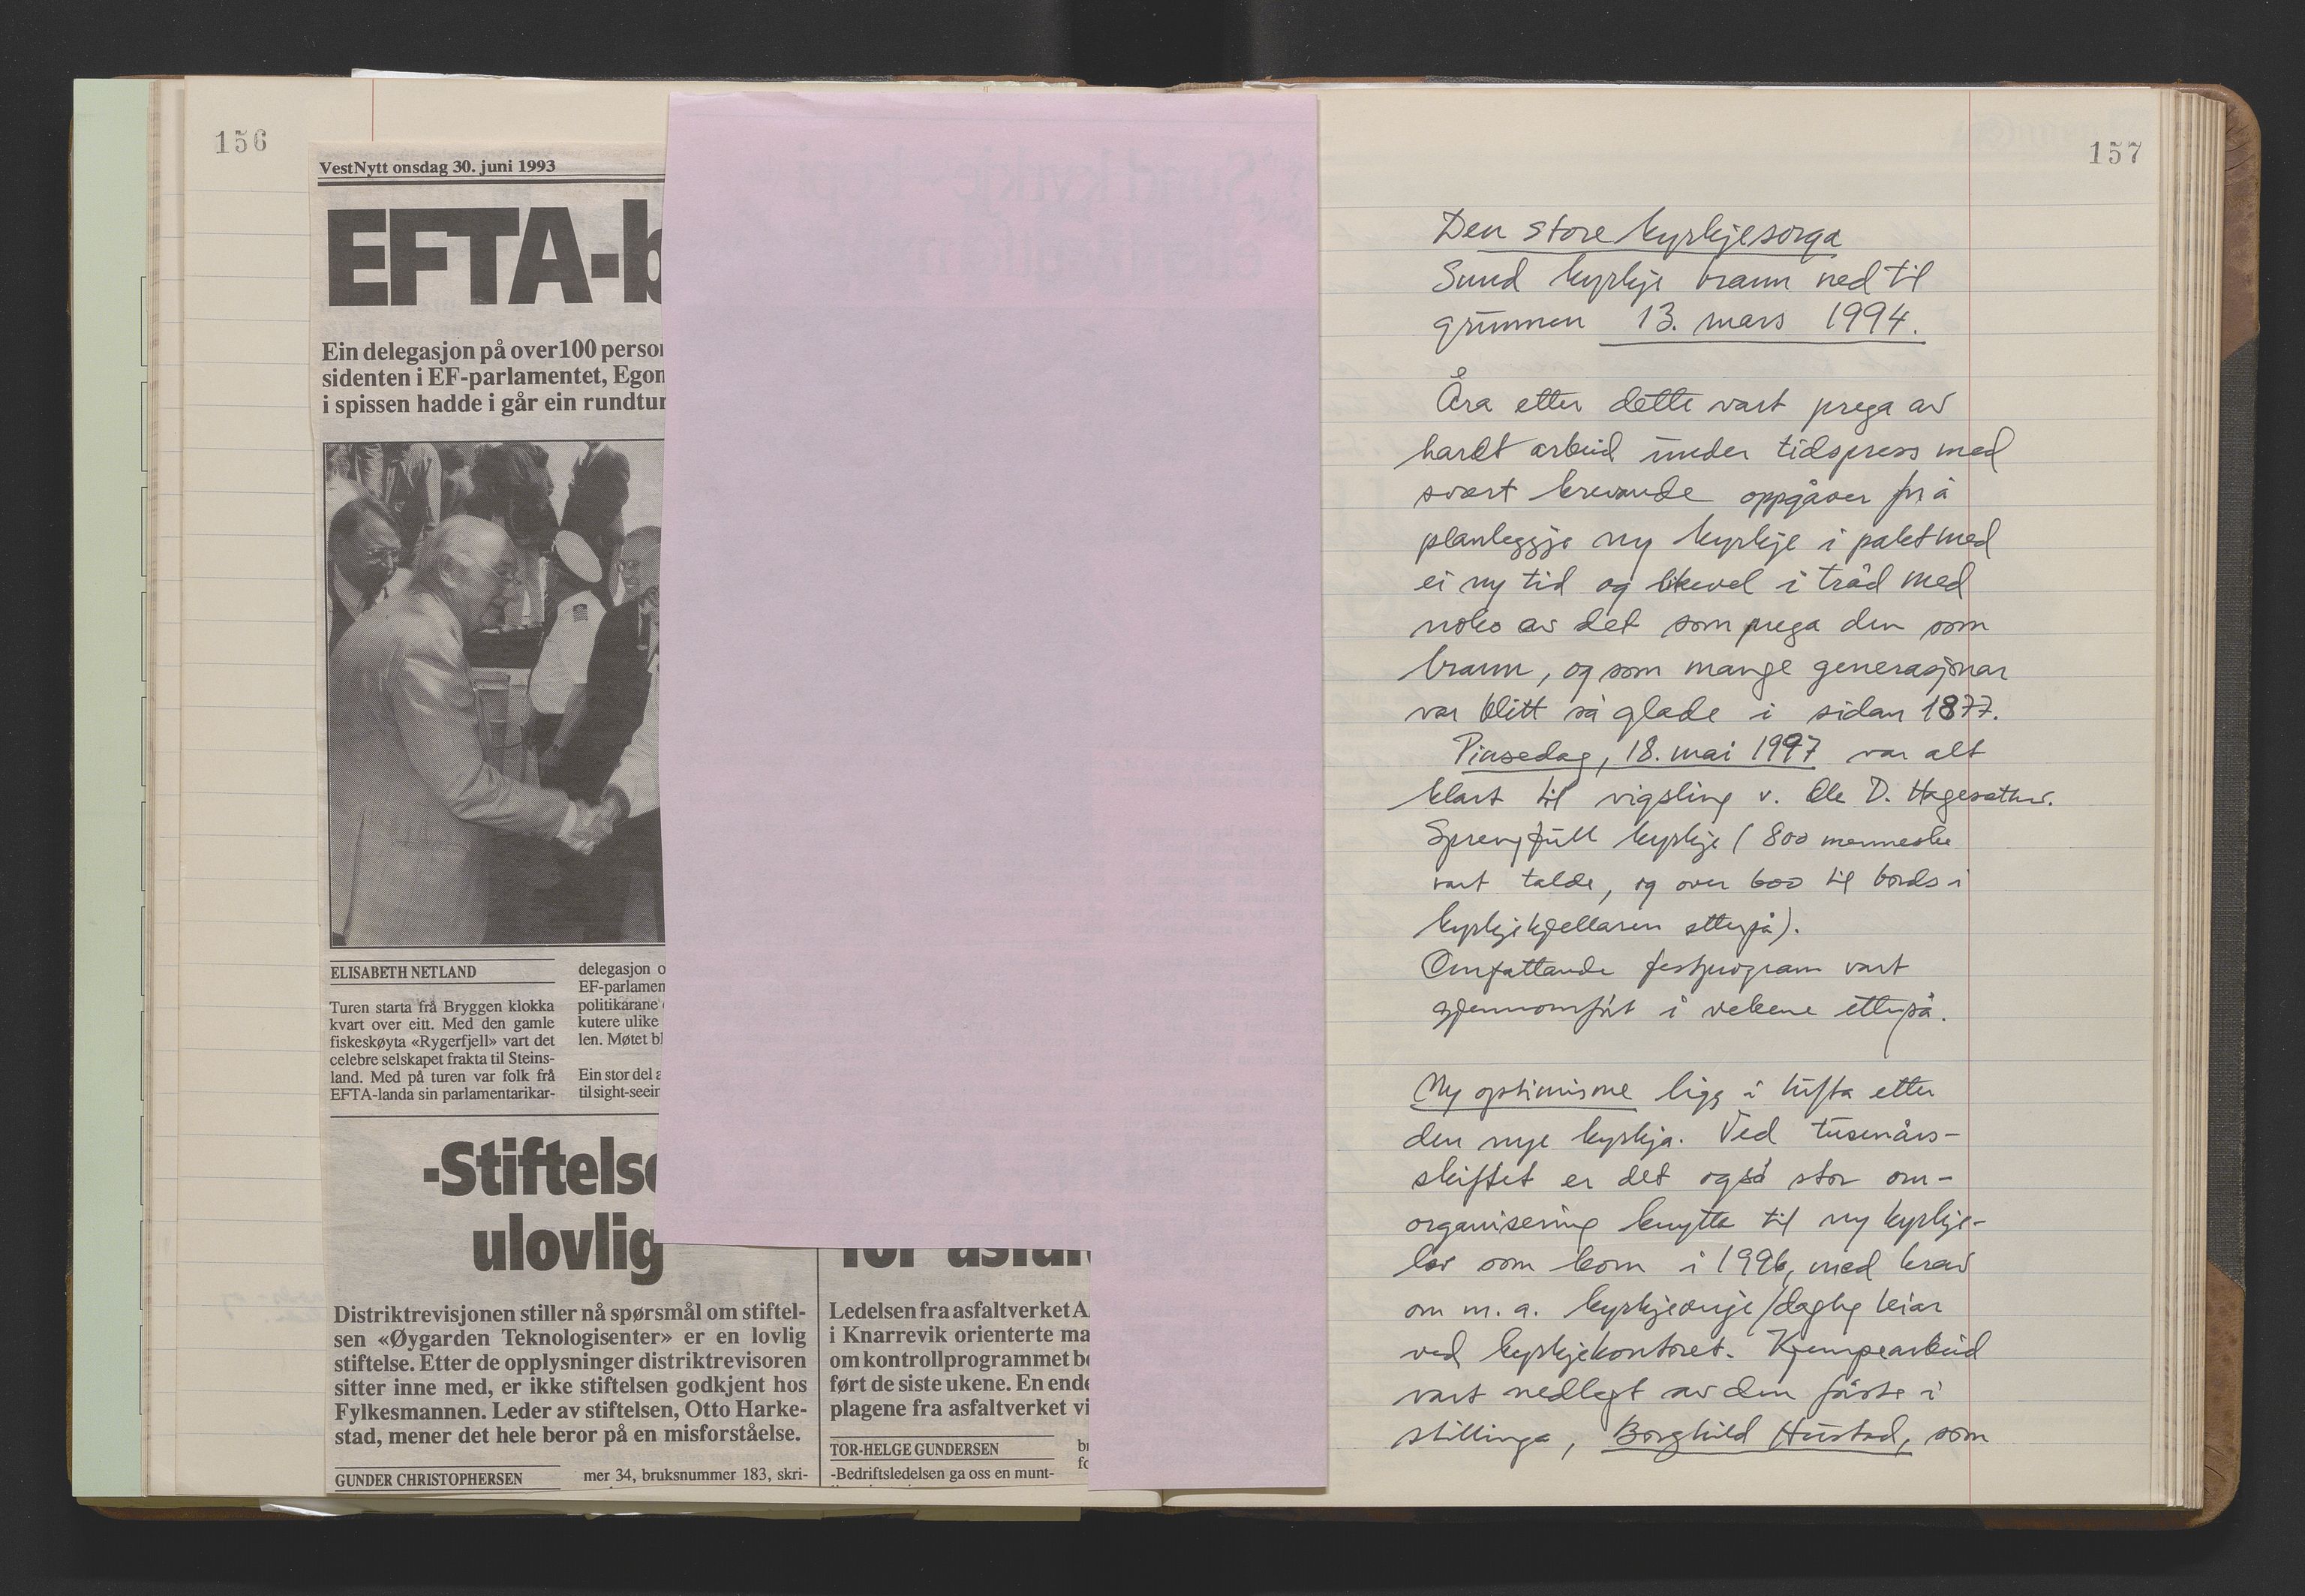 156
VestNytt onsdag 30. juni 1993
EFTA-b
Ein delegasjon på over 100 person
sidenten i EF-parlamentet, Egon
i spissen hadde i går ein rundtur
ELISABETH NETLAND
Turen starta frå Bryggen klokka
kvart over eitt. Med den gamle
fiskeskøyta «Rygerfjell» vart det
celebre selskapet frakta til Steins-
land. Med på turen var folk frå
EFTA-landa sin parlamentarikar-
delegasjon o
EF-parlamen
politikarane
kutere ulike
len. Møtet bl
Ein stor del a
til sight-seein
-Stiftelse
ulovlig
Distriktrevisjonen stiller nå spørsmål om stiftel-
sen «Øygarden Teknologisenter» er en lovlig
stiftelse. Etter de opplysninger distriktrevisoren
sitter inne med, er ikke stiftelsen godkjent hos
Fylkesmannen. Leder av stiftelsen, Otto Harke-
stad, mener det hele beror på en misforståelse.
GUNDER CHRISTOPHERSEN
mer 34, bruksnummer 183, skri-
for asfalt
Ledelsen fra asfaltverket A
i Knarrevik orienterte ma
om kontrollprogrammet be
ført de siste ukene. En ende
plagene fra asfaltverket vi
TOR-HELGE GUNDERSEN
-Bedriftsledelsen ga oss en munt-
br
fo
157
Den store kyrkjesorga
Sund kyrkje brann ned til
grunnen 13. mars 1994.
Åra etter dette vart prega av
hardt arbeid under tidspress med
svært krevande oppgåver for å
planleggje ny kyrkje i pakt med
ei ny tid og likevel i tråd med
noko av det som prega den som
brann, og som mange generasjonar
var blitt så glade i sidan 1877.
Pinsedag, 18. mai 1997 var alt
klart til vigsling v. Ole D. Hagesæther.
Sprengfull kyrkje (800 menneske
vart talde, og over 600 til bords i
kyrkjekjellaren etterpå).
Omfattande festprogram vart
gjennomført i vekene etterpå.
Ny optimisme ligg i lufta etter
den nye kyrkja. Ved tusenårs-
skiftet er det også stor om-
organisering knytta til ny kyrkje-
lov som kom i 1996, med krav
om m. a. kyrkjeverje/dagleg leiar
ved kyrkjekontoret. Kjempearbeid
vart nedlagt av den første i
stillinga, Borghild Hustad, som